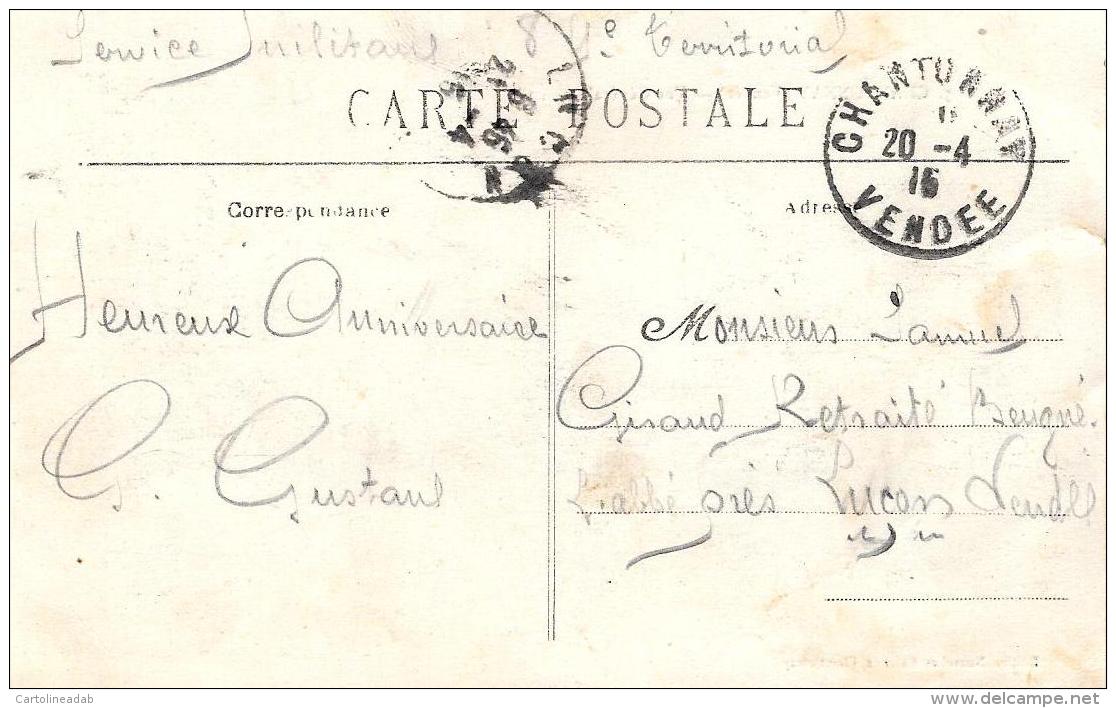 Service militaire 8 2e Territorial
CARTE POSTALE
CHANTONNAY
20 -4
15
VENDEE
Correspondance
Adresse
Heureux Anniversaire
G. Gustave
Monsieur Samuel
Giraud Retraité Beugné
l'abbé près Luçon Vendée
Cartolineadab
www.delcampe.net